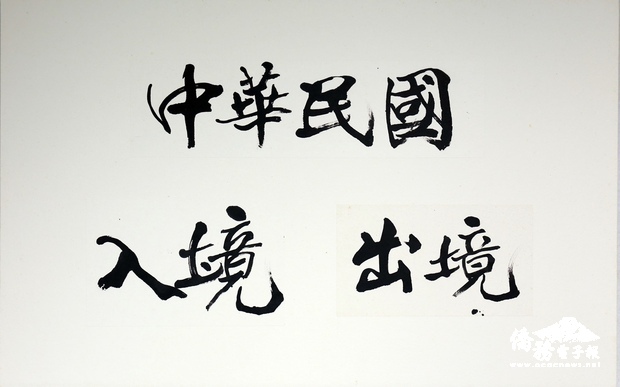 中華民國
入境 出境
僑務電子報
www.ocacnews.net